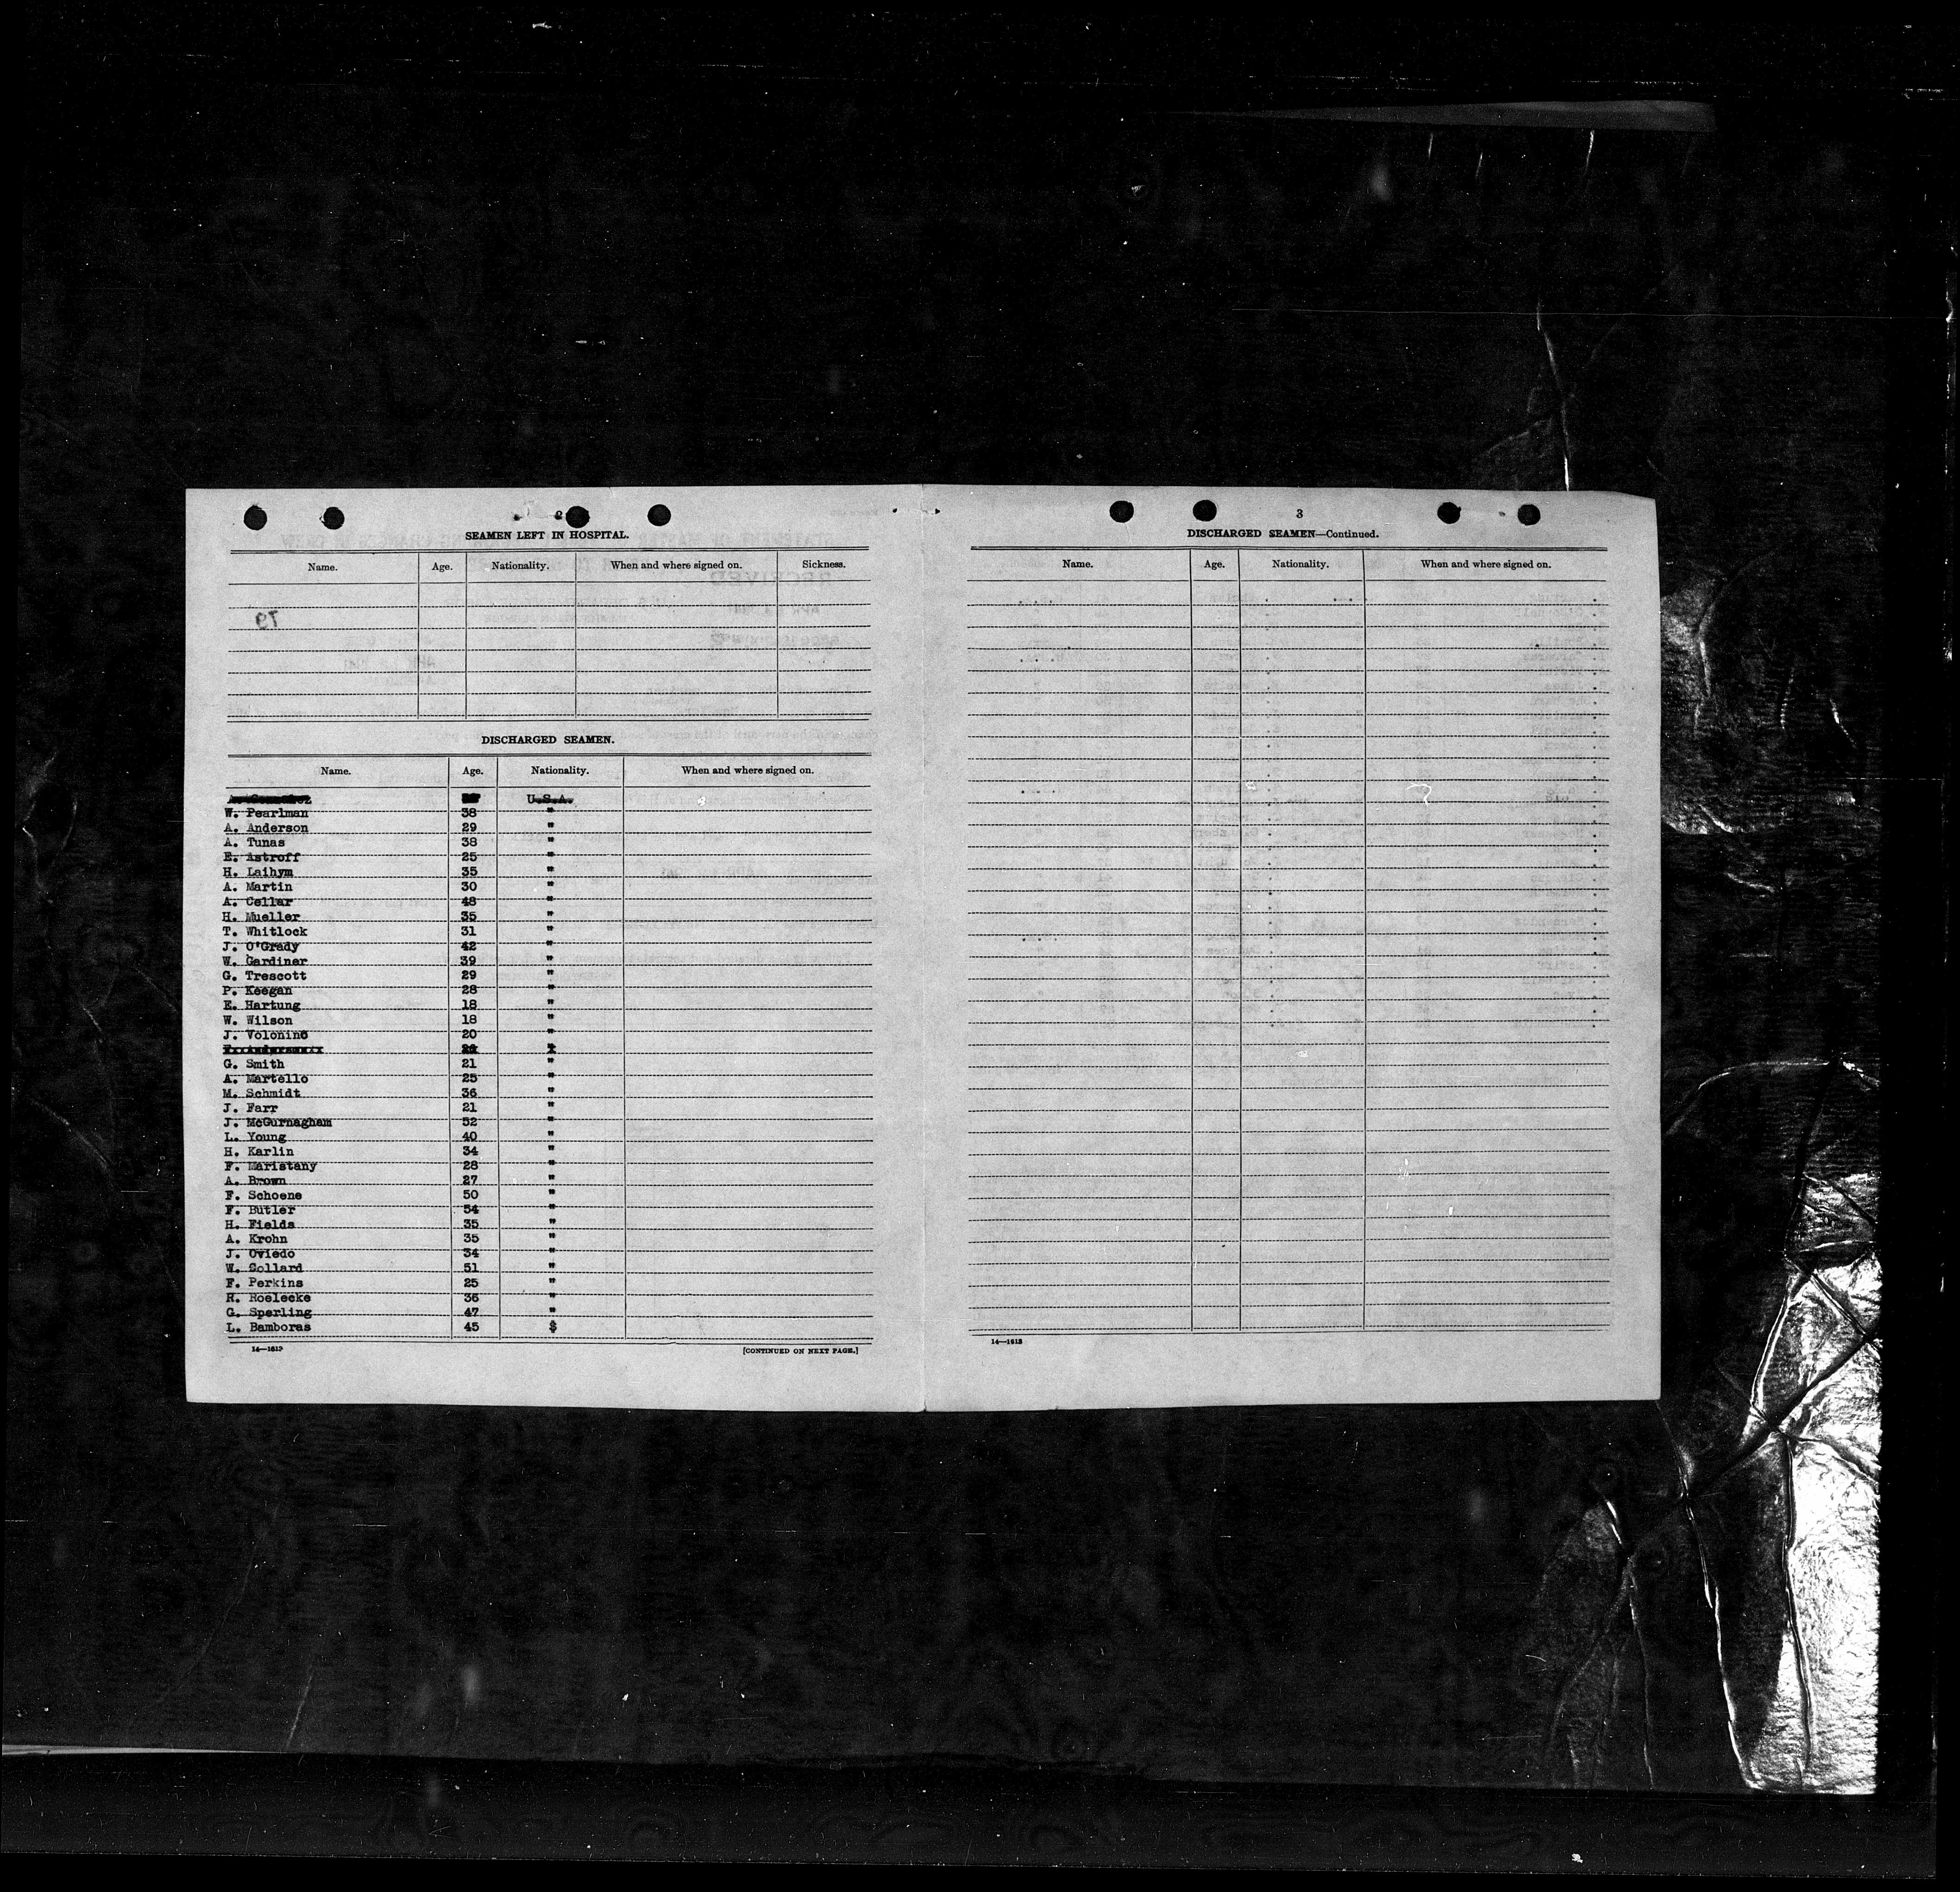 2
SEAMEN LEFT IN HOSPITAL.
Name. Age. Nationality. When and where signed on. Sickness.
79
DISCHARGED SEAMEN.
Name. Age. Nationality. When and where signed on.
U.S.A.
W. Pearlman 38 "
A. Anderson 29 "
A. Tunas 38 "
E. Astroff 25 "
H. Laihym 35 "
A. Martin 30 "
A. Cellar 48 "
H. Mueller 35 "
T. Whitlock 31 "
J. O'Grady 42 "
W. Gardiner 39 "
G. Trescott 29 "
P. Keegan 28 "
E. Hartung 18 "
W. Wilson 18 "
J. Volonino 20 "
G. Smith 21 "
A. Martello 25 "
M. Schmidt 36 "
J. Farr 21 "
J. McGurnagham 52 "
L. Young 40 "
H. Karlin 34 "
F. Maristany 28 "
A. Brown 27 "
F. Schoene 50 "
F. Butler 54 "
H. Fields 35 "
A. Krohn 35 "
J. Oviedo 34 "
W. Collard 51 "
F. Perkins 25 "
R. Roelecke 36 "
G. Sperling 47 "
L. Bamboras 45 $
14—1613
[CONTINUED ON NEXT PAGE.]
3
DISCHARGED SEAMEN—Continued.
Name. Age. Nationality. When and where signed on.
14—1613